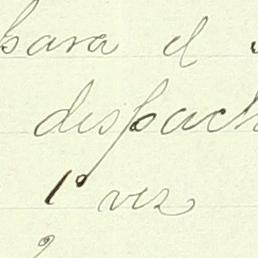 para el
despach
1º vez